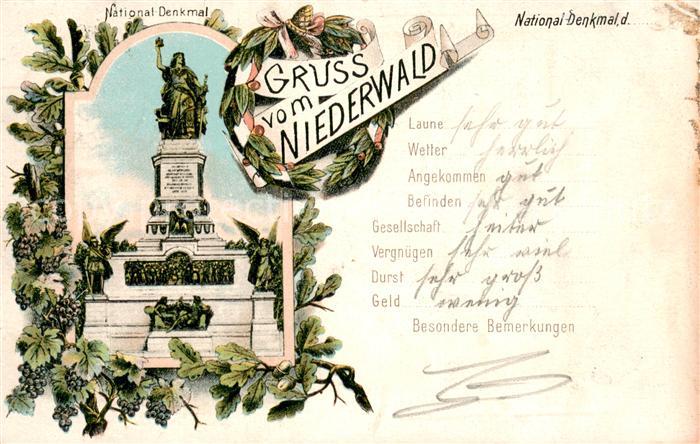 National-Denkmal
National-Denkmal, d.
GRUSS
vom
NIEDERWALD
Laune sehr gut
Wetter herrlich
Angekommen gut
Befinden sehr gut
Gesellschaft heiter
Vergnügen sehr viel
Durst sehr groß
Geld wenig
Besondere Bemerkungen